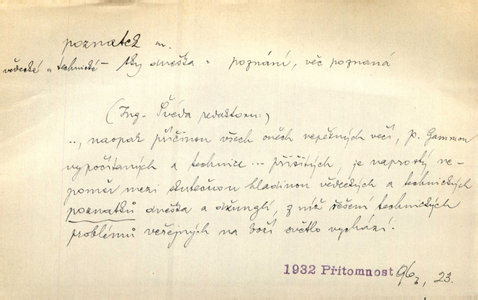 poznatek m.
vědecké a technické – -tky dneška · poznání, věc poznaná
(Ing. Švéda redaktoru:)
.., naopak příčinou všech oněch nepěkných věcí, p. Gammou
vypočítaných a technice ... přišitých, je naprostý ne-
poměr mezi skutečnou hladinou vědeckých a technických
poznatků dneška a džunglí, z níž řešení technických
problémů veřejných na boží světlo vychází.
1932 Přítomnost 23.